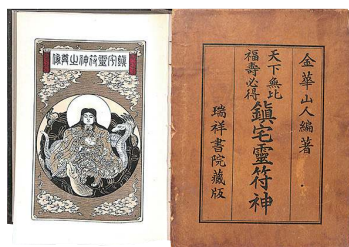 鎮宅靈符神出典像
金華山人編著
天下無比
福壽必得
鎮宅靈符神
瑞祥書院藏版